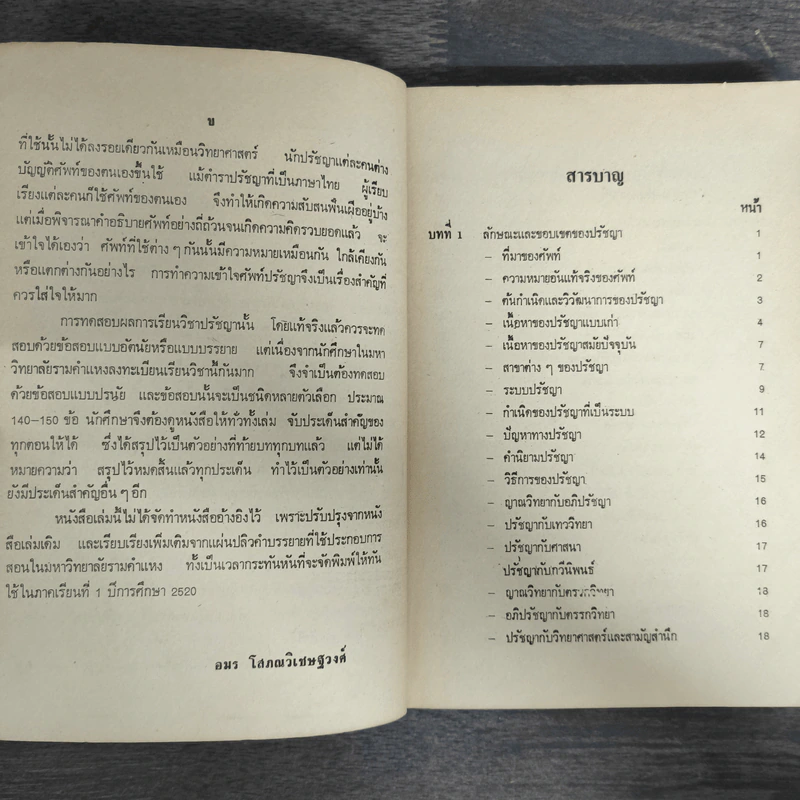 ข
ที่ใช้นั้นไม่ได้ลงรอยเดียวกันเหมือนวิทยาศาสตร์ นักปรัชญาแต่ละคนต่าง
บัญญัติศัพท์ของตนเองขึ้นใช้ แม้ตำราปรัชญาที่เป็นภาษาไทย ผู้เรียบ
เรียงแต่ละคนก็ใช้ศัพท์ของตนเอง จึงทำให้เกิดความสับสนพื้นเผืออยู่บ้าง
แต่เมื่อพิจารณาคำอธิบายศัพท์อย่างถี่ถ้วนจนเกิดความคิดรวบยอดแล้ว จะ
เข้าใจได้เองว่า ศัพท์ที่ใช้ต่าง ๆ กันนั้นมีความหมายเหมือนกัน ใกล้เคียงกัน
หรือแตกต่างกันอย่างไร การทำความเข้าใจศัพท์ปรัชญาจึงเป็นเรื่องสำคัญที่
ควรใส่ใจให้มาก
การทดสอบผลการเรียนวิชาปรัชญานั้น โดยแท้จริงแล้วควรจะทด
สอบด้วยข้อสอบแบบอัตนัยหรือแบบบรรยาย แต่เนื่องจากนักศึกษาในมหา
วิทยาลัยรามคำแหงลงทะเบียนเรียนวิชานี้กันมาก จึงจำเป็นต้องทดสอบ
ด้วยข้อสอบแบบปรนัย และข้อสอบนั้นจะเป็นชนิดหลายตัวเลือก ประมาณ
140—150 ข้อ นักศึกษาจึงต้องดูหนังสือให้ทั่วทั้งเล่ม จับประเด็นสำคัญของ
ทุกตอนให้ได้ ซึ่งได้สรุปไว้เป็นตัวอย่างที่ท้ายบททุกบทแล้ว แต่ไม่ได้
หมายความว่า สรุปไว้หมดสิ้นแล้วทุกประเด็น ทำไว้เป็นตัวอย่างเท่านั้น
ยังมีประเด็นสำคัญอื่น ๆ อีก
หนังสือเล่มนี้ไม่ได้จัดทำหนังสืออ้างอิงไว้ เพราะปรับปรุงจากหนัง
สือเล่มเดิม และเรียบเรียงเพิ่มเติมจากแผ่นปลิวคำบรรยายที่ใช้ประกอบการ
สอนในมหาวิทยาลัยรามคำแหง ทั้งเป็นเวลากระทันหันที่จะจัดพิมพ์ให้ทัน
ใช้ในภาคเรียนที่ 1 ปีการศึกษา 2520
อมร โสภณวิเชษฐวงศ์
สารบาญ
หน้า
บทที่ 1 ลักษณะและขอบเขตของปรัชญา 1
– ที่มาของศัพท์ 1
– ความหมายอันแท้จริงของศัพท์ 2
– ต้นกำเนิดและวิวัฒนาการของปรัชญา 3
– เนื้อหาของปรัชญาแบบเก่า 4
– เนื้อหาของปรัชญาสมัยปัจจุบัน 7
– สาขาต่าง ๆ ของปรัชญา 7
– ระบบปรัชญา 9
– กำเนิดของปรัชญาที่เป็นระบบ 11
– ปัญหาทางปรัชญา 12
– คำนิยามปรัชญา 14
– วิธีการของปรัชญา 15
– ญาณวิทยากับอภิปรัชญา 16
– ปรัชญากับเทววิทยา 16
– ปรัชญากับศาสนา 17
ปรัชญากับกวีนิพนธ์ 17
– ญาณวิทยากับตรรกวิทยา 18
– อภิปรัชญากับตรรกวิทยา 18
– ปรัชญากับวิทยาศาสตร์และสามัญสำนึก 18